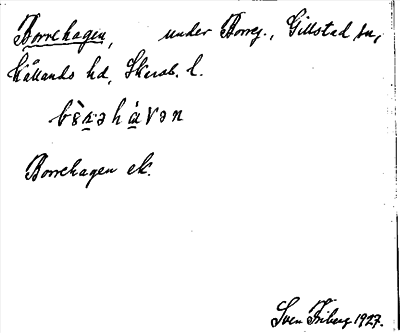 Borrehagen, under Borreg., Gillstad sn,
Kållands hd, Skarab. l.
bòrəhàvən
Borrehagen ek.
Sven Friberg 1927.